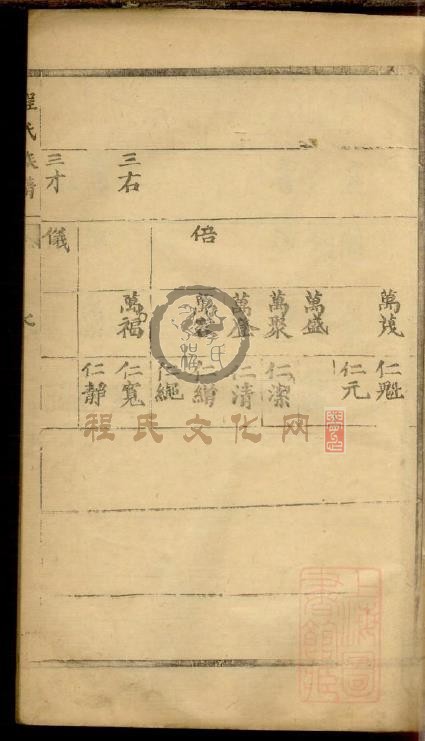 三右
三才
倍
儀
萬茂
萬盛
萬聚
萬登
萬福
仁魁
仁元
仁潔
仁清
仁繒
仁繩
仁寬
仁靜
程氏族譜
程氏文化网
上海圖書館藏